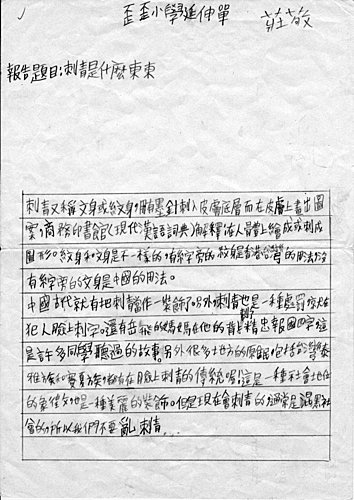 歪歪小學延伸單
莊敬
報告題目:刺青是什麼東東
刺青又稱文身或紋身,用墨針刺入皮膚底層而在皮膚上畫出圖
案,商務印書館《現代漢語詞典》解釋佑人體上繪成或刺成
圖形。紋身和文身是不一樣的,有絞字旁的紋身是香港台灣的用法,沒
有絞字旁的文身是中國的用法。
中國古代就有把刺青當作一裝飾了,另外刺青也是一種處罰,
犯人臉上刺字。還有岳飛的媽媽在他的背上刺精忠報國四字,這
是許多同學聽過的故事,另外很多地方的原住民,包括台灣泰
雅族和賽夏族,都有在臉上刺青的傳統呢!這是一種社會地位
的象徵,也是一種美麗的裝飾。但是現在會刺青的,通常是混黑社
會的,所以我們不要亂刺青...